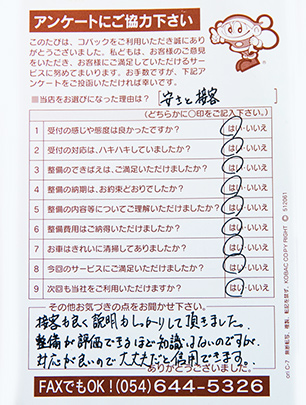 アンケートにご協力下さい
このたびは、コバックをご利用いただき誠にあり
がとうございました。私どもは、お客様のご意見
をいただき、お客様にご満足していただけるサー
ビスに努めてまいります。お手数ですが、下記アン
ケートをご投函いただければ幸いです。
■当店をお選びになった理由は？ 安さと接客
(どちらかに○印をご記入下さい。)
1 受付の感じや態度は良かったですか？ はい・いいえ
2 受付の対応は、ハキハキしていましたか？ はい・いいえ
3 整備のできばえは、ご満足いただけましたか？ はい・いいえ
4 整備の納期は、お約束どおりでしたか？ はい・いいえ
5 整備の内容等についてご理解いただけましたか？ はい・いいえ
6 整備費用はご納得いただけましたか？ はい・いいえ
7 お車はきれいに清掃してありましたか？ はい・いいえ
8 今回のサービスにご満足いただけましたか？ はい・いいえ
9 次回も当社をご利用いただけますか？ はい・いいえ
その他お気づきの点をお聞かせ下さい。
接客も良く説明もしっかりして頂きました。
整備が評価できるほど知識はないのですが、
対応が良いので大丈夫だと信用できます。
ありがとうございました。
FAXでもOK！(054)644-5326
cri C-7 無断転写、複製、転記を禁ず。 KOBAC COPY RIGHT © 512061